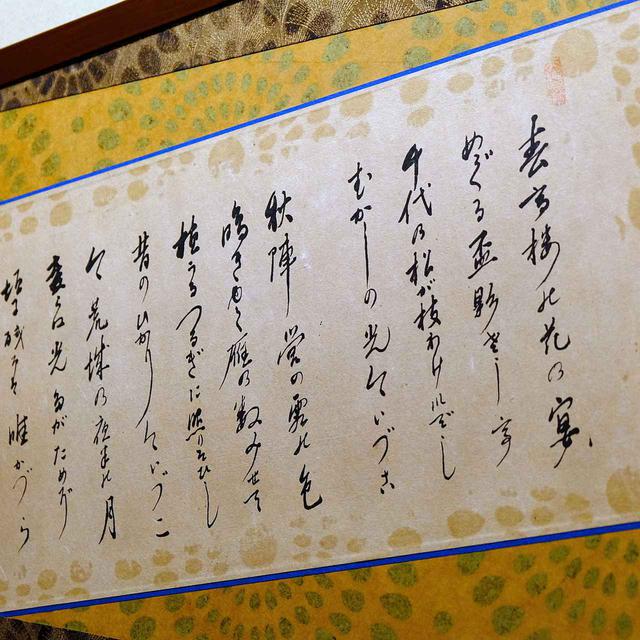 春高楼の花の宴、
めぐる盃影さして
千代の松が枝わけ出でし
むかしの光今いづこ
秋陣営の霜の色
鳴き行く雁の数みせて
植うるつるぎに照りそひし
昔のひかり今いづこ
今荒城の夜半の月
変らぬ光たがためぞ
垣に残るは唯かづら